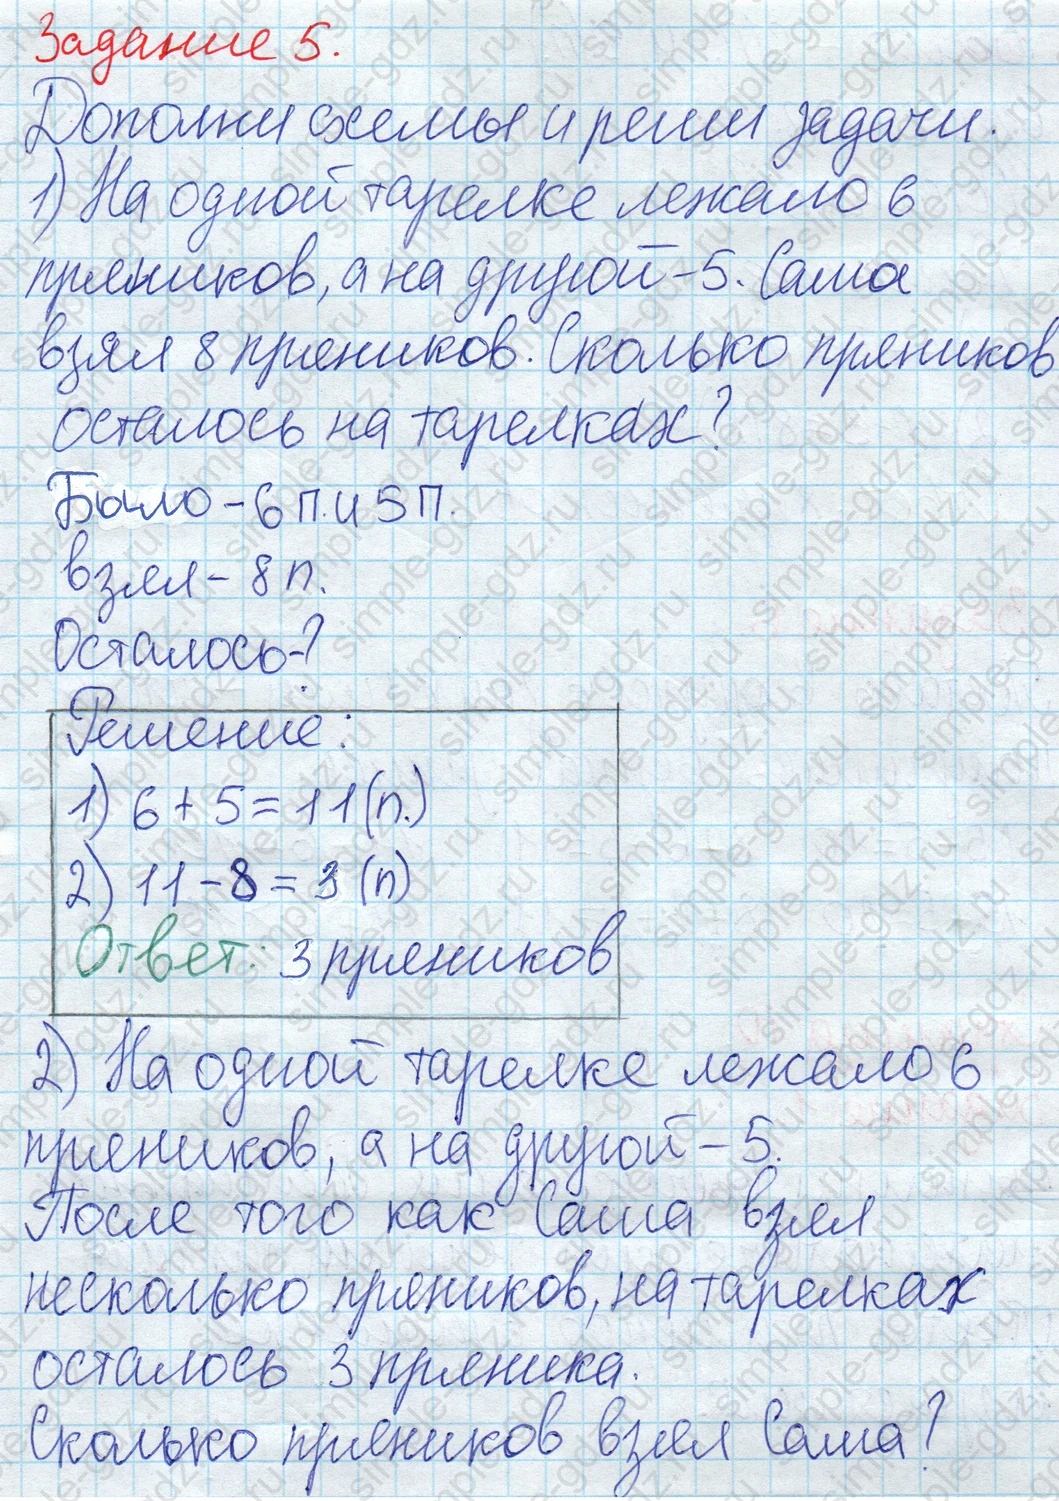 Задание 5.
Дополни схемы и реши задачи.
1) На одной тарелке лежало 6
пряников, а на другой - 5. Саша
взял 8 пряников. Сколько пряников
осталось на тарелках?
Было - 6 п. и 5 п.
взял - 8 п.
Осталось - ?
Решение:
1) 6 + 5 = 11 (п.)
2) 11 - 8 = 3 (п)
Ответ: 3 пряников
2) На одной тарелке лежало 6
пряников, а на другой - 5.
После того как Саша взял
несколько пряников, на тарелках
осталось 3 пряника.
Сколько пряников взял Саша?